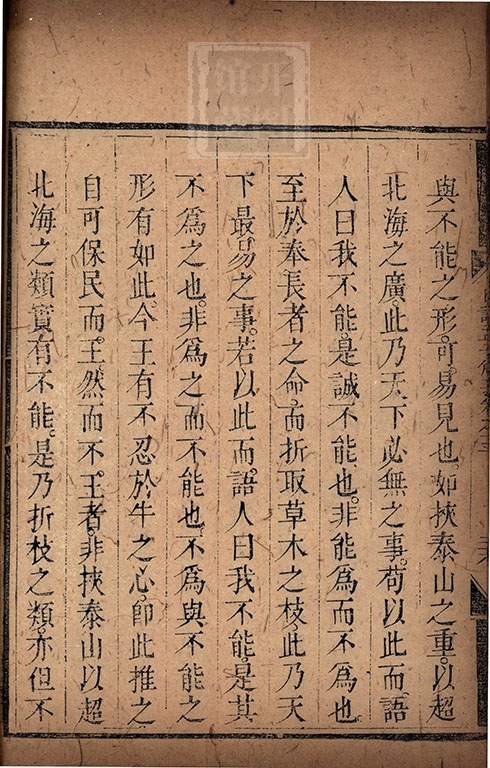 與不能之形可易見也。如挾泰山之重。以超
北海之廣。此乃天下必無之事。苟以此而語
人曰我不能。是誠不能也。非能爲而不爲也
至於奉長者之命。而折取草木之枝此乃天
下最易之事。若以此而語人曰我不能。是其
不爲之也。非爲之而不能也。不爲與不能之
形有如此。今王有不忍於牛之心。卽此推之
自可保民而王。然而不王者。非挾泰山以超
北海之類實有不能。是乃折枝之類。亦但不